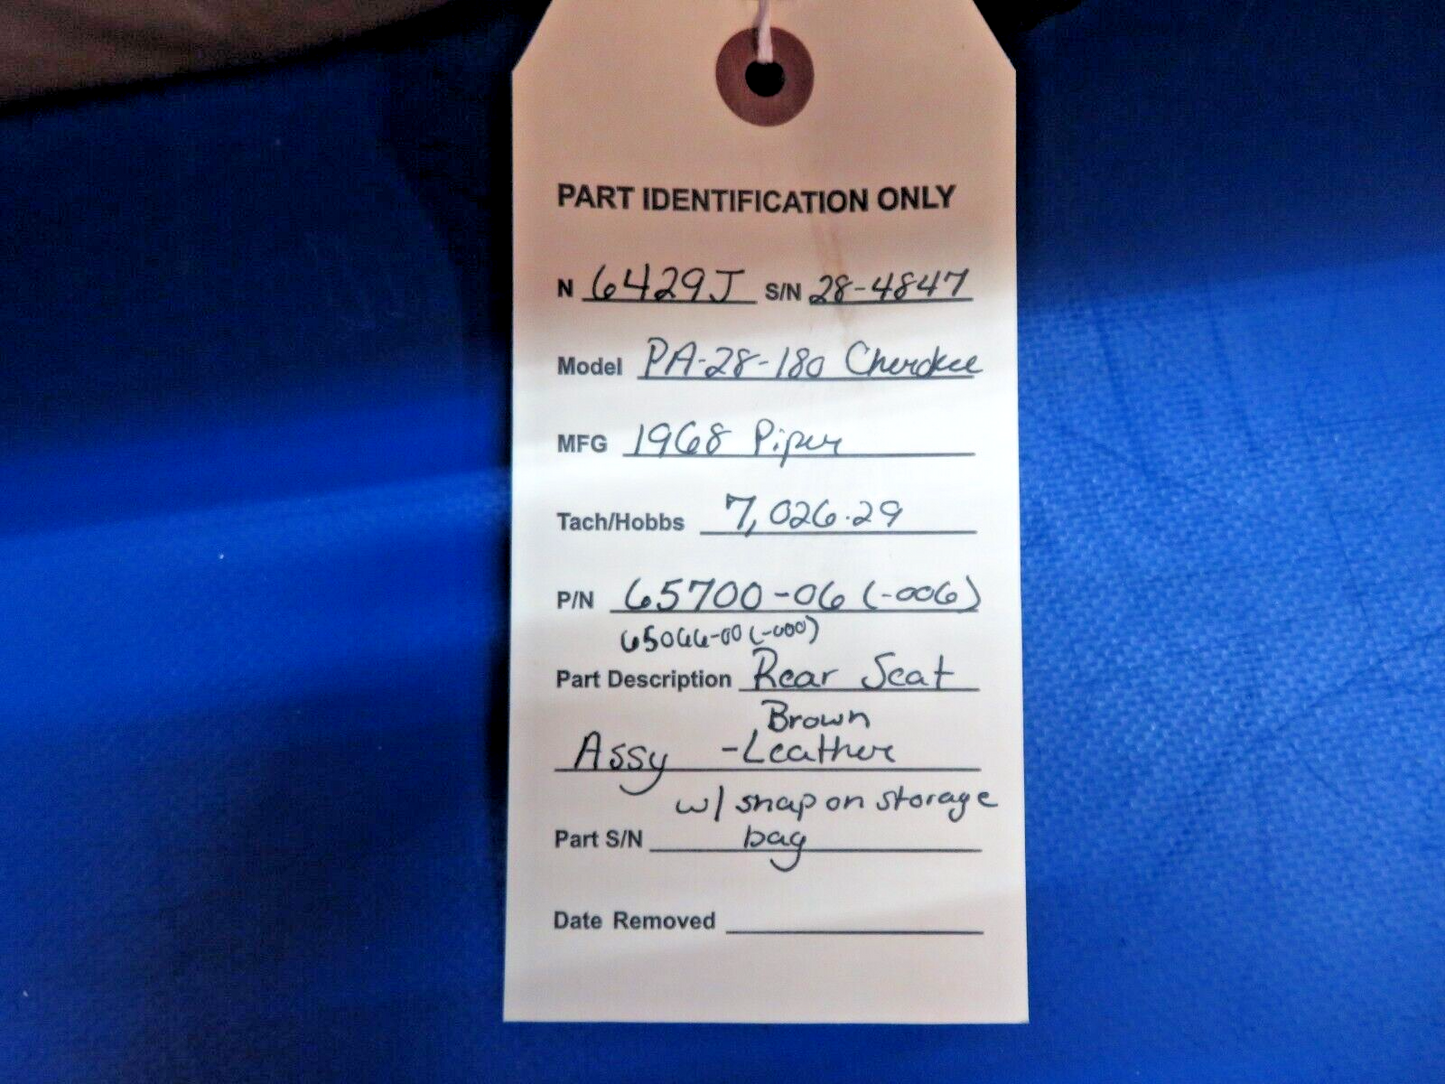 PART IDENTIFICATION ONLY
N 6429J S/N 28-4847
Model PA-28-180 Cherokee
MFG 1968 Piper
Tach/Hobbs 7,026.29
P/N 65700-06 (-006)
65066-00 (-000)
Part Description Rear Seat
Brown
Assy -Leather
w/ snap on storage
Part S/N bag
Date Removed